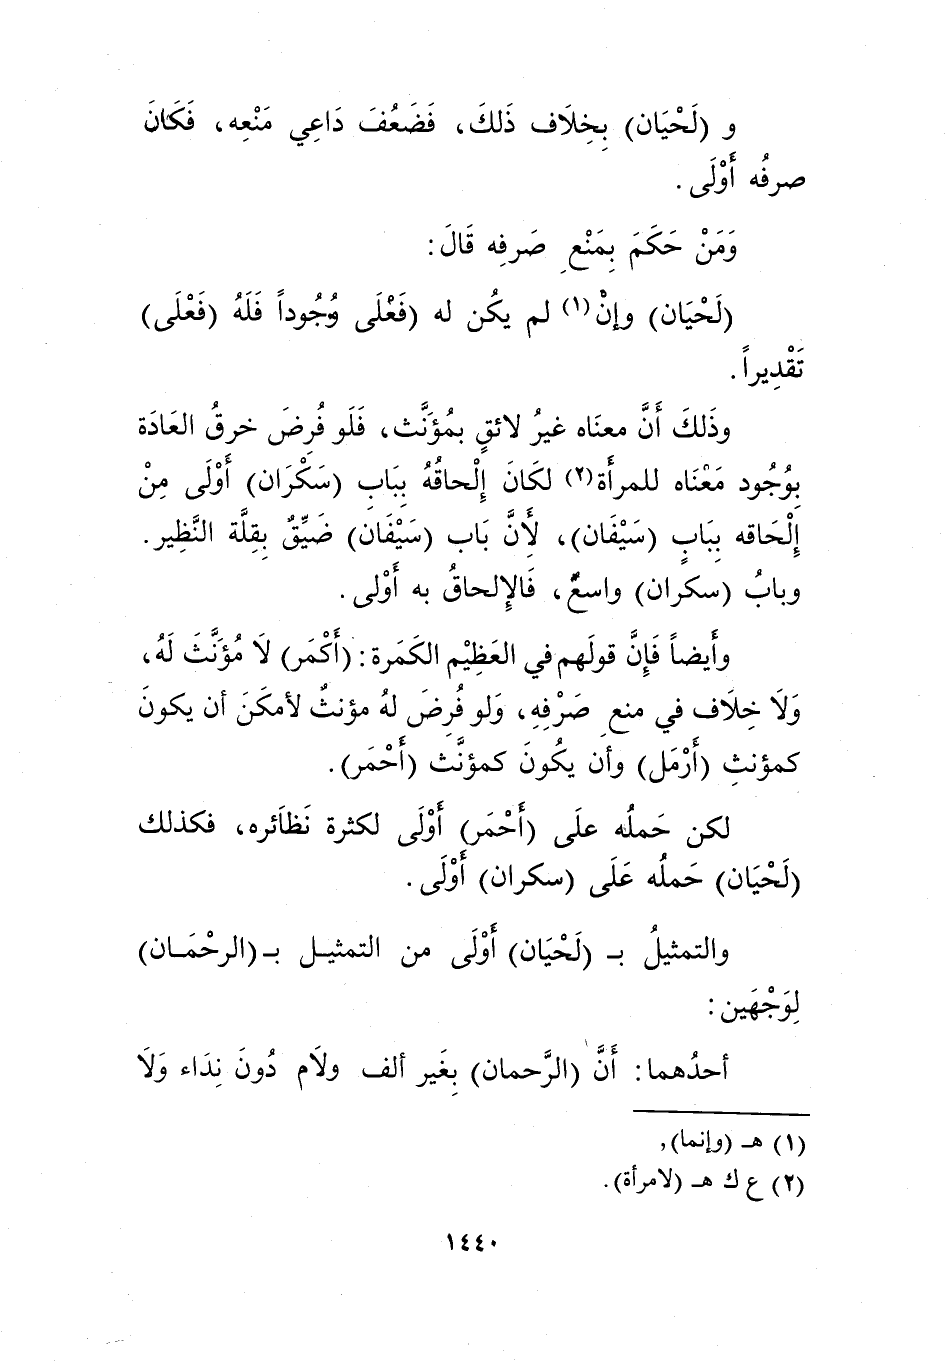 و (لَحْيَان) بِخِلَاف ذَلكَ، فَضَعُفَ دَاعِي مَنْعِه، فَكَانَ
صرفُه أَوْلَى.
وَمَنْ حَكَمَ بِمَنْعِ صَرفِه قَالَ:
(لَحْيَان) وإنْ(١) لم يكُن له (فَعْلَى وُجُوداً فَلَهُ (فَعْلَى)
تَقْدِيراً.
وذَلكَ أَنَّ معنَاه غيرُ لائقٍ بمُؤَنَّث، فَلَو فُرِضَ خرقُ العَادَة
بوُجُود مَعْنَاه للمرأَة(٢) لكَانَ إِلْحاقُهُ بِبَابِ (سَكْرَان) أَوْلَى مِنْ
إِلْحَاقه بِبَابٍ (سَيْفَان)، لأَنَّ بَاب (سَيْفَان) ضَيِّقٌ بِقِلَّة النَّظِير.
وبابُ (سكران) واسعٌ، فَالإلحاقُ به أَوْلى.
وأَيضاً فَإِنَّ قولَهم في العَظِيْم الكَمَرة: (أَكْمَر) لَا مُؤَنَّثَ لَهُ،
وَلَا خِلَاف في منعِ صَرْفِهِ، وَلو فُرِضَ لهُ مؤنثٌ لأمكَنَ أن يكونَ
كمؤنثِ (أَرْمَل) وأن يكُونَ كمؤنَّث (أَحْمَر).
لكن حَملُه علَى (أَحْمَر) أَوْلَى لكثرة نَظَائره، فكذلك
(لَحْيَان) حَملُه عَلَى (سكران) أَوْلَى.
والتمثيلُ بـ (لَحْيَان) أَوْلَى من التمثيـل بـ (الرحْمَـان)
لِوَجْهَين:
أحدُهما: أَنَّ (الرَّحمان) بِغَير ألف ولَام دُونَ نِدَاء وَلَا
(١) هـ (وإنما),
(٢) ع ك هـ (لامرأة).
١٤٤٠